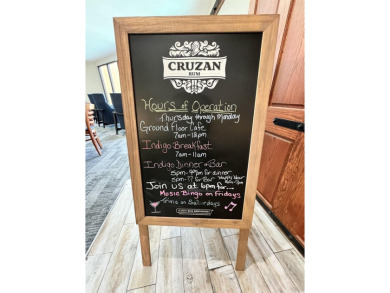 CRUZAN
RUM
Hours of Operation
Thursday through Monday
Ground Floor Cafe
7am-12pm
Indigo Breakfast
7am-11am
Indigo Dinner & Bar
5pm-9pm for dinner
5pm-?? for Bar
Happy Hour
Join us at 6pm for...
Music Bingo on Fridays
Trivia on Saturdays